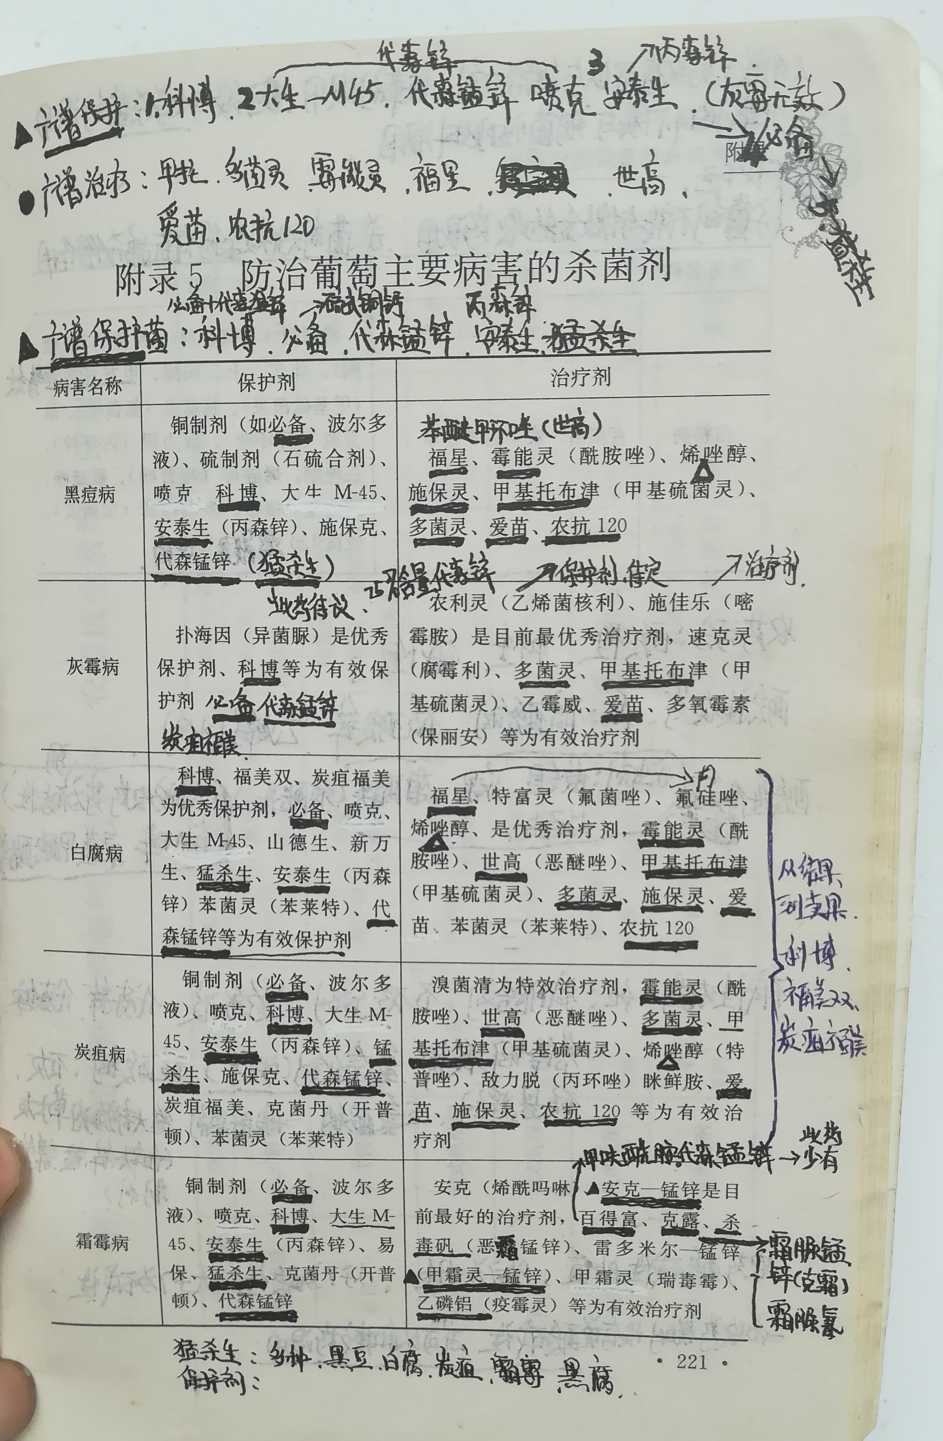 代森锌 3 ↗丙森锌
▲广谱保护：1.科博 2大生—M45、代森锰锌 喷克 安泰生（灰霉无效）
必备
附
●广谱治疗：甲托、多菌灵 霉能灵、福星 世高、
爱苗、农抗120
附录5 防治葡萄主要病害的杀菌剂
丙森锌
▲广谱保护菌：科博、必备、代森锰锌、安泰生、猛杀生
病害名称 保护剂 治疗剂
黑痘病
铜制剂（如必备、波尔多
液）、硫制剂（石硫合剂）、
喷克 科博、大生 M-45、
安泰生（丙森锌）、施保克、
代森锰锌（猛杀生）
苯醚甲环唑（世高）
福星、霉能灵（酰胺唑）、烯唑醇、
施保灵、甲基托布津（甲基硫菌灵）、
多菌灵、爱苗、农抗 120
此药待议、75%含量代森锌 ↗保护剂待定 ↗治疗剂
灰霉病
扑海因（异菌脲）是优秀
保护剂、科博等为有效保
护剂 必备 代森锰锌
炭疽福美
农利灵（乙烯菌核利）、施佳乐（嘧
霉胺）是目前最优秀治疗剂，速克灵
（腐霉利）、多菌灵、甲基托布津（甲
基硫菌灵）、乙霉威、爱苗、多氧霉素
（保丽安）等为有效治疗剂
白腐病
科博、福美双、炭疽福美
为优秀保护剂，必备、喷克、
大生 M-45、山德生、新万
生、猛杀生、安泰生（丙森
锌）苯菌灵（苯莱特）、代
森锰锌等为有效保护剂
福星、特富灵（氟菌唑）、氟硅唑、
烯唑醇、是优秀治疗剂，霉能灵（酰
胺唑）、世高（恶醚唑）、甲基托布津
（甲基硫菌灵）、多菌灵、施保灵、爱
苗、苯菌灵（苯莱特）、农抗 120
从结果
到卖果
科博、
福美双、
炭疽福美
炭疽病
铜制剂（必备、波尔多
液）、喷克、科博、大生 M-
45、安泰生（丙森锌）、锰
杀生、施保克、代森锰锌、
炭疽福美、克菌丹（开普
顿）、苯菌灵（苯莱特）
溴菌清为特效治疗剂，霉能灵（酰
胺唑）、世高（恶醚唑）、多菌灵、甲
基托布津（甲基硫菌灵）、烯唑醇（特
普唑）、敌力脱（丙环唑）眯鲜胺、爱
苗、施保灵、农抗 120 等为有效治
疗剂
甲呋酰胺代森锰锌→此药
少有
霜霉病
铜制剂（必备、波尔多
液）、喷克、科博、大生 M-
45、安泰生（丙森锌）、易
保、猛杀生、克菌丹（开普
顿）、代森锰锌
安克（烯酰吗啉）▲安克—锰锌是目
前最好的治疗剂，百得富、克露、杀
毒矾（恶霜锰锌）、雷多米尔—锰锌
▲（甲霜灵—锰锌）、甲霜灵（瑞毒霉）、
乙磷铝（疫霉灵）等为有效治疗剂
霜脲锰
锌（克霜）
霜脲氰
猛杀生：多种、黑豆、白腐、炭疽、霜霉 黑腐、
保护剂：
·221·